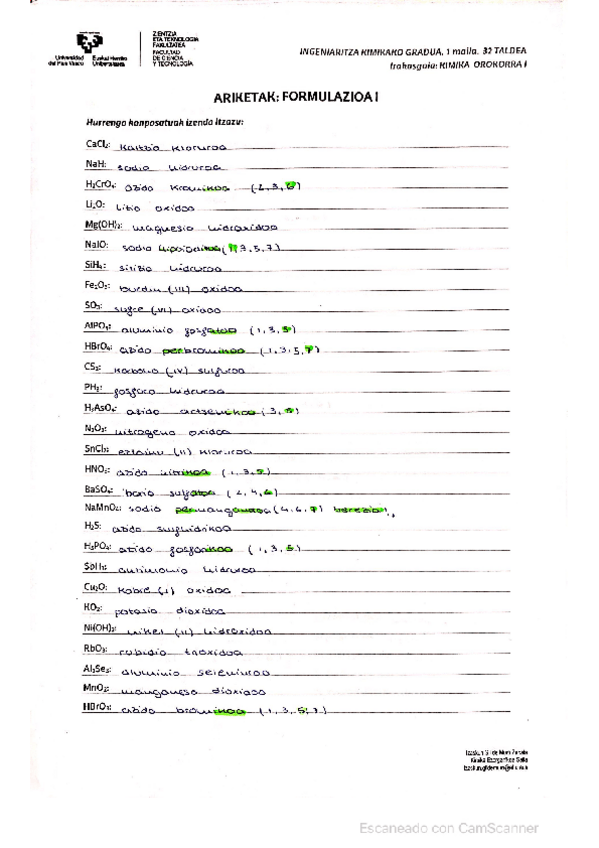 ZIENTZIA
ETA TEKNOLOGIA
FAKULTATEA
FACULTAD
DE CIENCIA
Y TECNOLOGÍA
Universidad del País Vasco Euskal Herriko Unibertsitatea
INGENIARITZA KIMIKAKO GRADUA, 1 maila. 32 TALDEA
Irakasgaia: KIMIKA OROKORRA I
ARIKETAK: FORMULAZIOA I
Hurrengo konposatuak izenda itzazu:
CaCl₂: kaltzio kloruroa
NaH: sodio hidruroa
H₂CrO₄: azido kromikoa (2,3,6)
Li₂O: litio oxidoa
Mg(OH)₂: magnesio hidroxidoa
NaIO: sodio hipoioditoa (1,3,5,7)
SiH₄: silizio hidruroa
Fe₂O₃: burdin (III) oxidoa
SO₃: sufre (VI) oxidoa
AlPO₄: aluminio fosfatoa (1,3,5)
HBrO₄: azido perbromikoa (1,3,5,7)
CS₂: karbono (IV) sulfuroa
PH₃: fosforo hidruroa
H₃AsO₄: azido artsenikoa (3,5)
N₂O₃: nitrogeno oxidoa
SnCl₂: eztainu (II) kloruroa
HNO₃: azido nitrikoa (1,3,5)
BaSO₄: bario sulfatoa (2,4,6)
NaMnO₄: sodio permanganatoa (4,6,7) berezia!,
H₂S: azido sulfhidrikoa
H₃PO₄: azido fosforikoa (1,3,5)
SbH₃: antimonio hidruroa
Cu₂O: kobre (I) oxidoa
KO₂: potasio dioxidoa
Ni(OH)₂: nikel (II) hidroxidoa
RbO₃: rubidio trioxidoa
Al₂Se₃: aluminio seleniuroa
MnO₂: manganeso dioxidoa
HBrO₃: azido bromikoa (1,3,5,7)
Escaneado con CamScanner